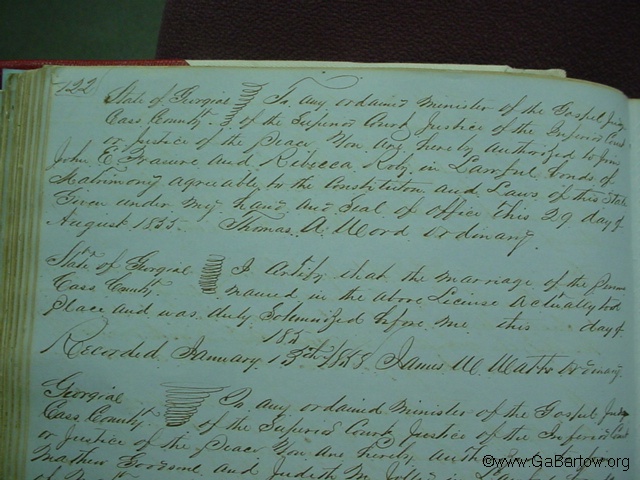 122
State of Georgia To any ordained Minister of the Gospel Judge
Cass County of the Superior Court Justice of the Inferior Court
or Justice of the Peace You are hereby Authorized to join
John E. Frasure and Rebecca Roby in Lawful bonds of
Matrimony agreeably to the Constitution and Laws of this State
Given under my hand and Seal of office this 29 day of
August 1855 Thomas A. Word Ordinary
State of Georgia I Certify that the marriage of the Persons
Cass County named in the above License Actually took
place and was duly Solemnized before me this day of
185
Recorded January 13th 1858 James W. Watts Ordinary
Georgia To any ordained Minister of the Gospel Judge
Cass County of the Superior Court Justice of the Inferior Court
or Justice of the Peace You are hereby
and Judith M.
©www.GaBartow.org